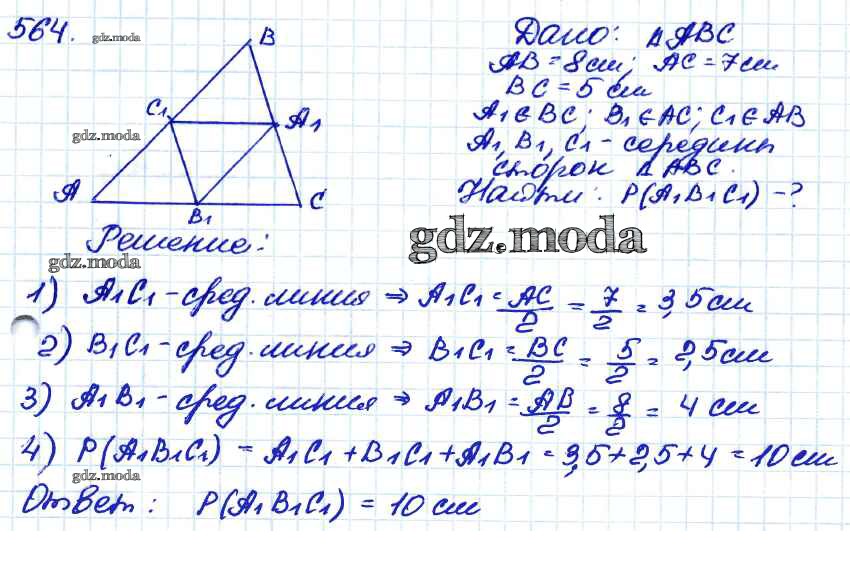 564. gdz.moda
B
C₁
A₁
gdz.moda
A
B₁
C
Дано: Δ ABC
AB = 8 cm; AC = 7 cm
BC = 5 cm
A₁ ∈ BC; B₁ ∈ AC; C₁ ∈ AB
A₁, B₁, C₁ - середины
сторон Δ ABC.
Найти: P(A₁B₁C₁) - ?
Решение:
gdz.moda
gdz.moda
1) A₁C₁ - сред. линия ⇒ A₁C₁ = AC/2 = 7/2 = 3,5 cm
2) B₁C₁ - сред. линия ⇒ B₁C₁ = BC/2 = 5/2 = 2,5 cm
3) A₁B₁ - сред. линия ⇒ A₁B₁ = AB/2 = 8/2 = 4 cm
4) P(A₁B₁C₁) = A₁C₁ + B₁C₁ + A₁B₁ = 3,5 + 2,5 + 4 = 10 cm
gdz.moda
Ответ: P(A₁B₁C₁) = 10 cm
gdz.moda